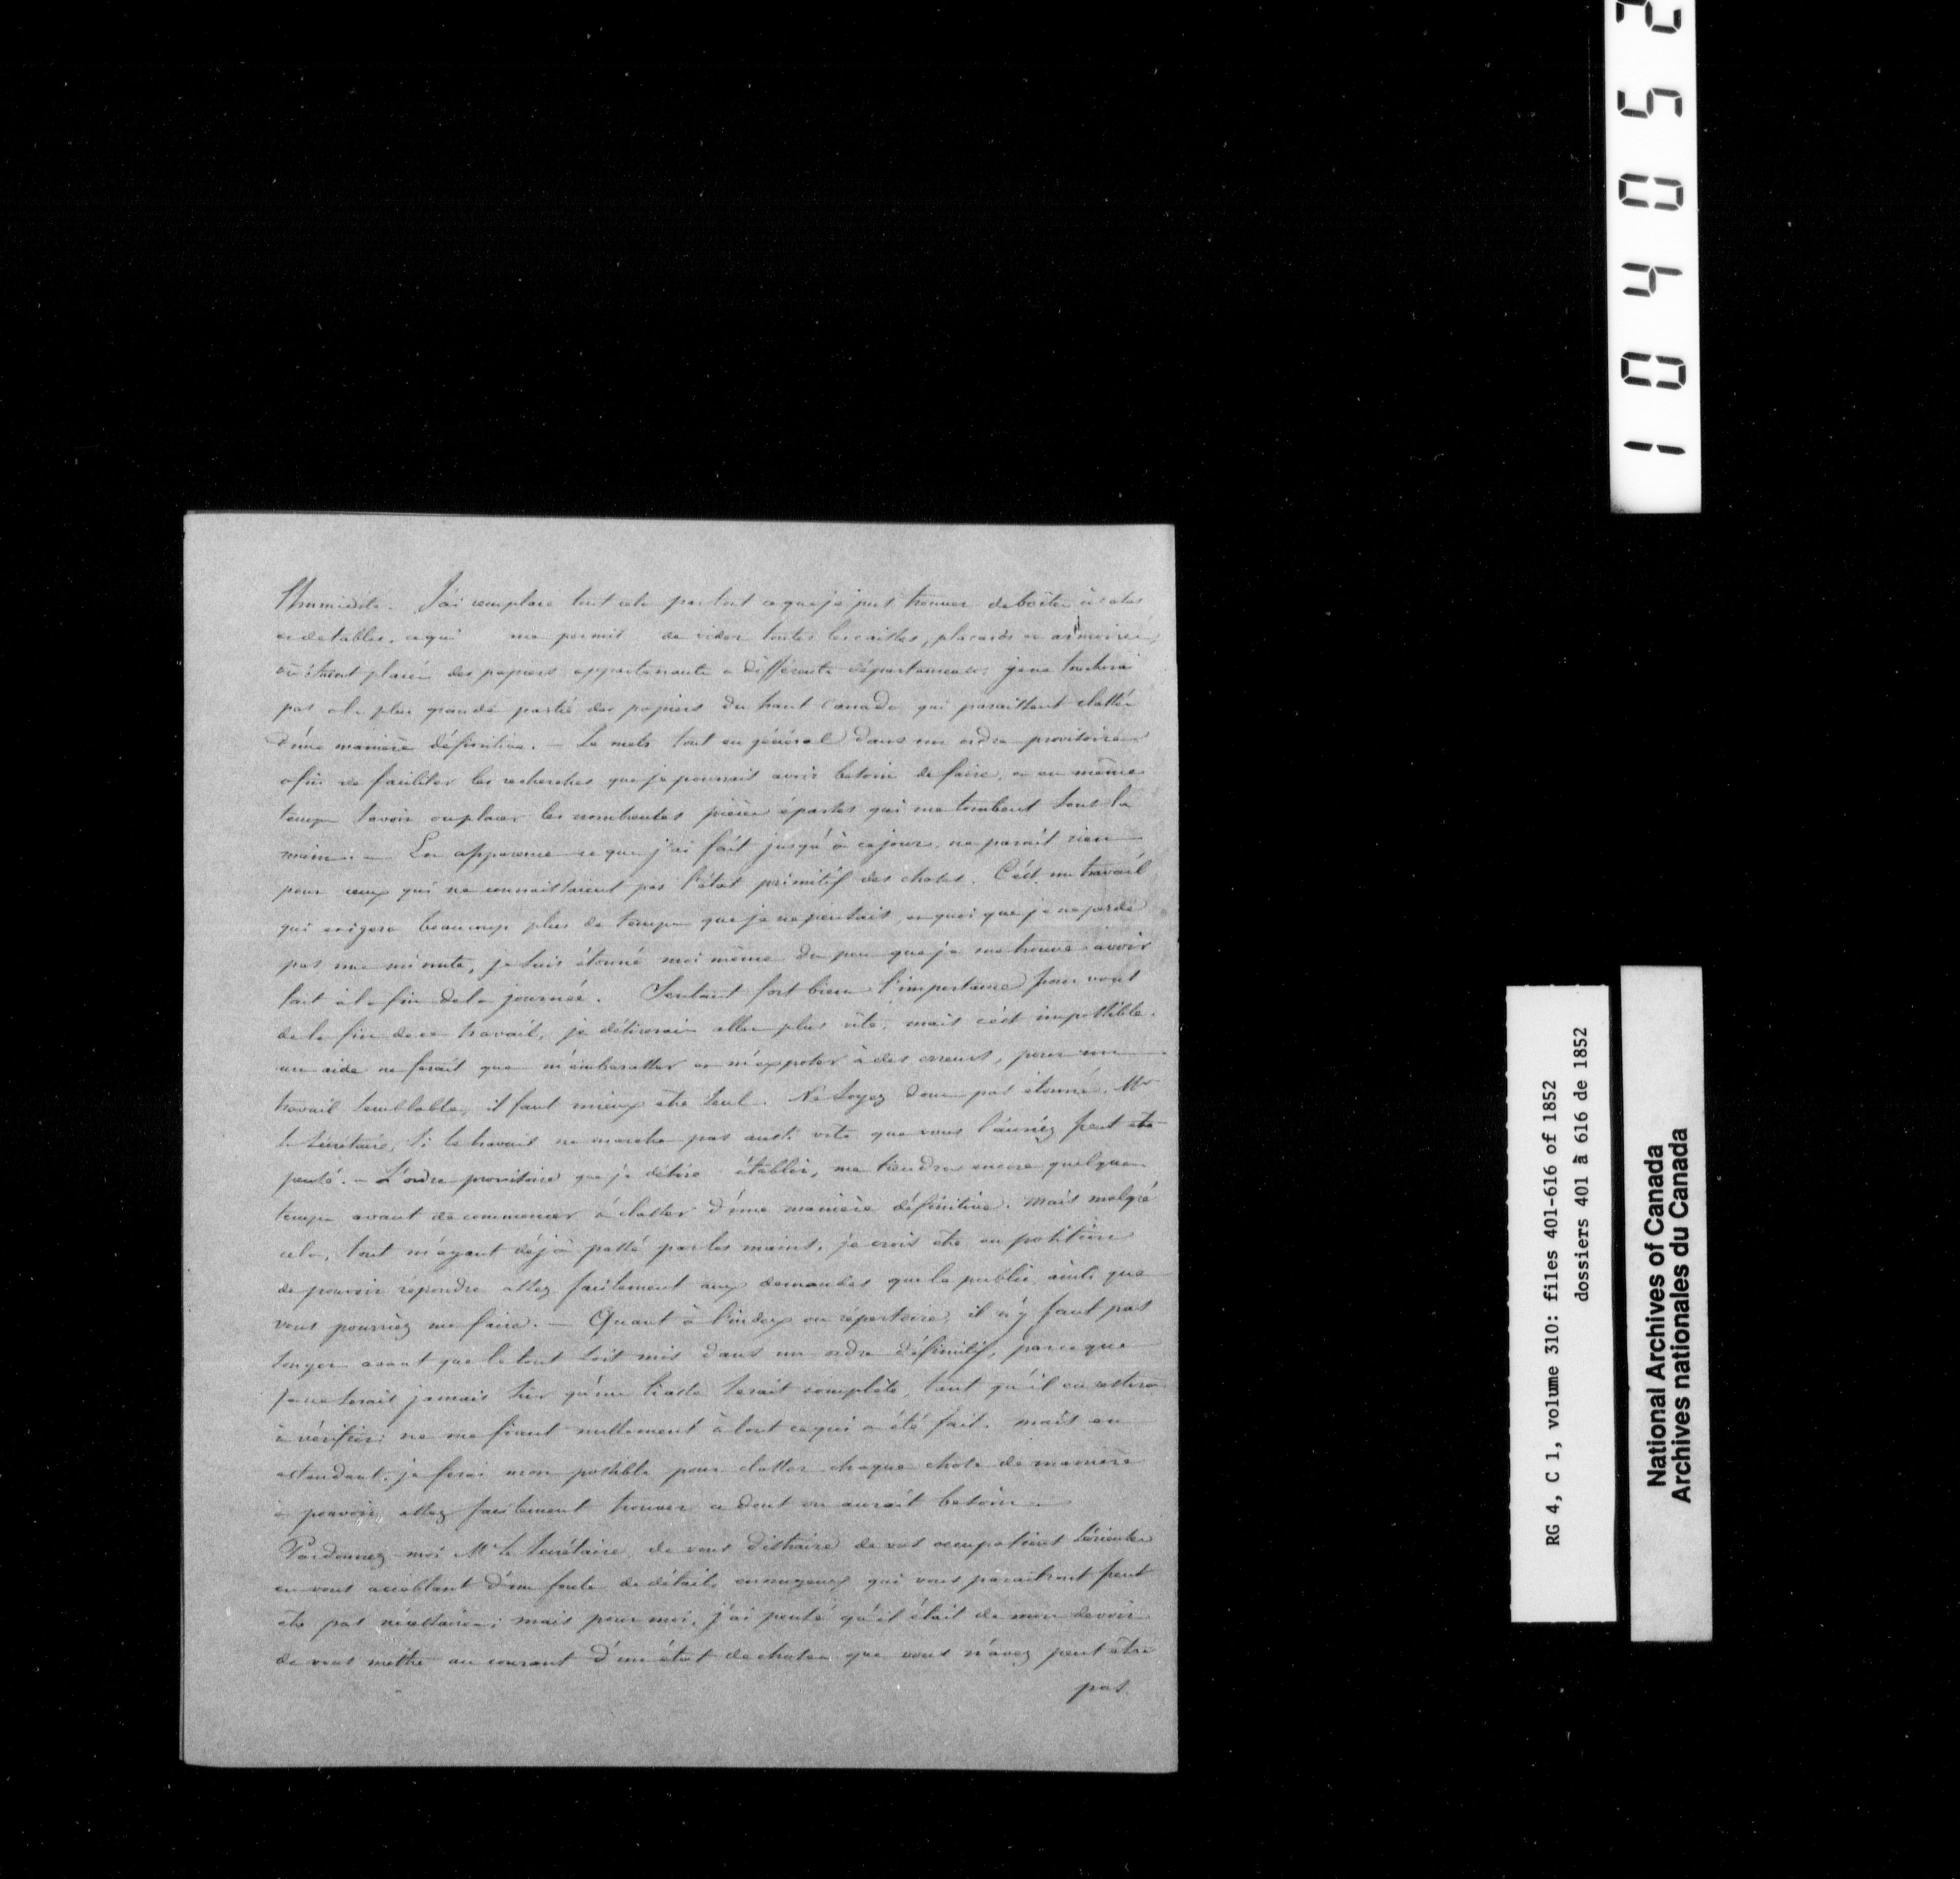 l'humidité. J'ai remplacé tout cela par tout ce que je pus trouver de boîtes
et de tables, ce qui me permit de vider toutes les caisses, placards et armoires
où étaient placés des papiers appartenants a différents départements; je ne toucherai
pas à la plus grande partie des papiers du haut Canada qui paraissent classés
d'une manière définitive. — Je mets tout en général dans un ordre provisoire
afin de faciliter les recherches que je pourrais avoir besoin de faire, et en même
temps savoir où placer les nombreuses pièces éparses qui me tombent sous la
main. — En apparence ce que j'ai fait jusqu'à ce jour, ne parait rien
pour ceux qui ne connaissaient pas l'état primitif des choses. C'est un travail
qui exigera beaucoup plus de temps que je ne pensais, et quoi que je ne perde
pas une minute, je suis étonné moi même du peu que je me trouve avoir
fait à la fin de la journée. Sentant fort bien l'importance pour vous
de la fin de ce travail, je désirerais aller plus vite, mais c'est impossible.
un aide ne ferait que m'embarasser et m'exposer à des erreurs, pour un
travail semblable, il faut mieux etre seul. Ne soyez donc pas étonné, Mr
le Secrétaire, si le travail ne marche pas aussi vite que vous l'auriez peut etre
pensé. — L'ordre provisoire que je désire établir, me tiendra encore quelque
temps avant de commencer à classer d'une manière définitive. mais malgré
cela, tout m'ayant déjà passé par les mains, je crois etre en position
de pouvoir répondre assez facilement aux demandes que le public ainsi que
vous pourriez me faire. — Quant à l'index ou répertoire, il n'y faut pas
songer avant que le tout soit mis dans un ordre définitif, parceque
je ne serais jamais sûr qu'une liasse serait complète, tant qu'il en restera
à vérifier; ne me fiant nullement à tout ce qui a été fait. mais en
attendant, je ferai mon possible pour classer chaque chose de manière
à pouvoir assez facilement trouver ce dont on aurait besoin. —
Pardonnez moi Mr le Secrétaire, de vous distraire de vos occupations sérieuses
en vous accablant d'une foule de détails ennuyeux qui vous paraitront peut
etre pas nécessaires; mais pour moi, j'ai pensé qu'il était de mon devoir
de vous mettre au courant d'un état de choses que vous n'avez peut être
pas
1 0 4 0 5 2
RG 4, C 1, volume 310: files 401-616 of 1852
dossiers 401 à 616 de 1852
National Archives of Canada
Archives nationales du Canada